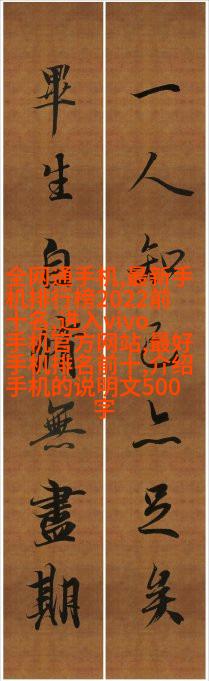 一人知己亦足矣
畢生自修無盡期
全网通手机,最新手
机排行榜2022前
十名,进入vivo
手机官方网站,最好
手机排名前十,介绍
手机的说明文500
字